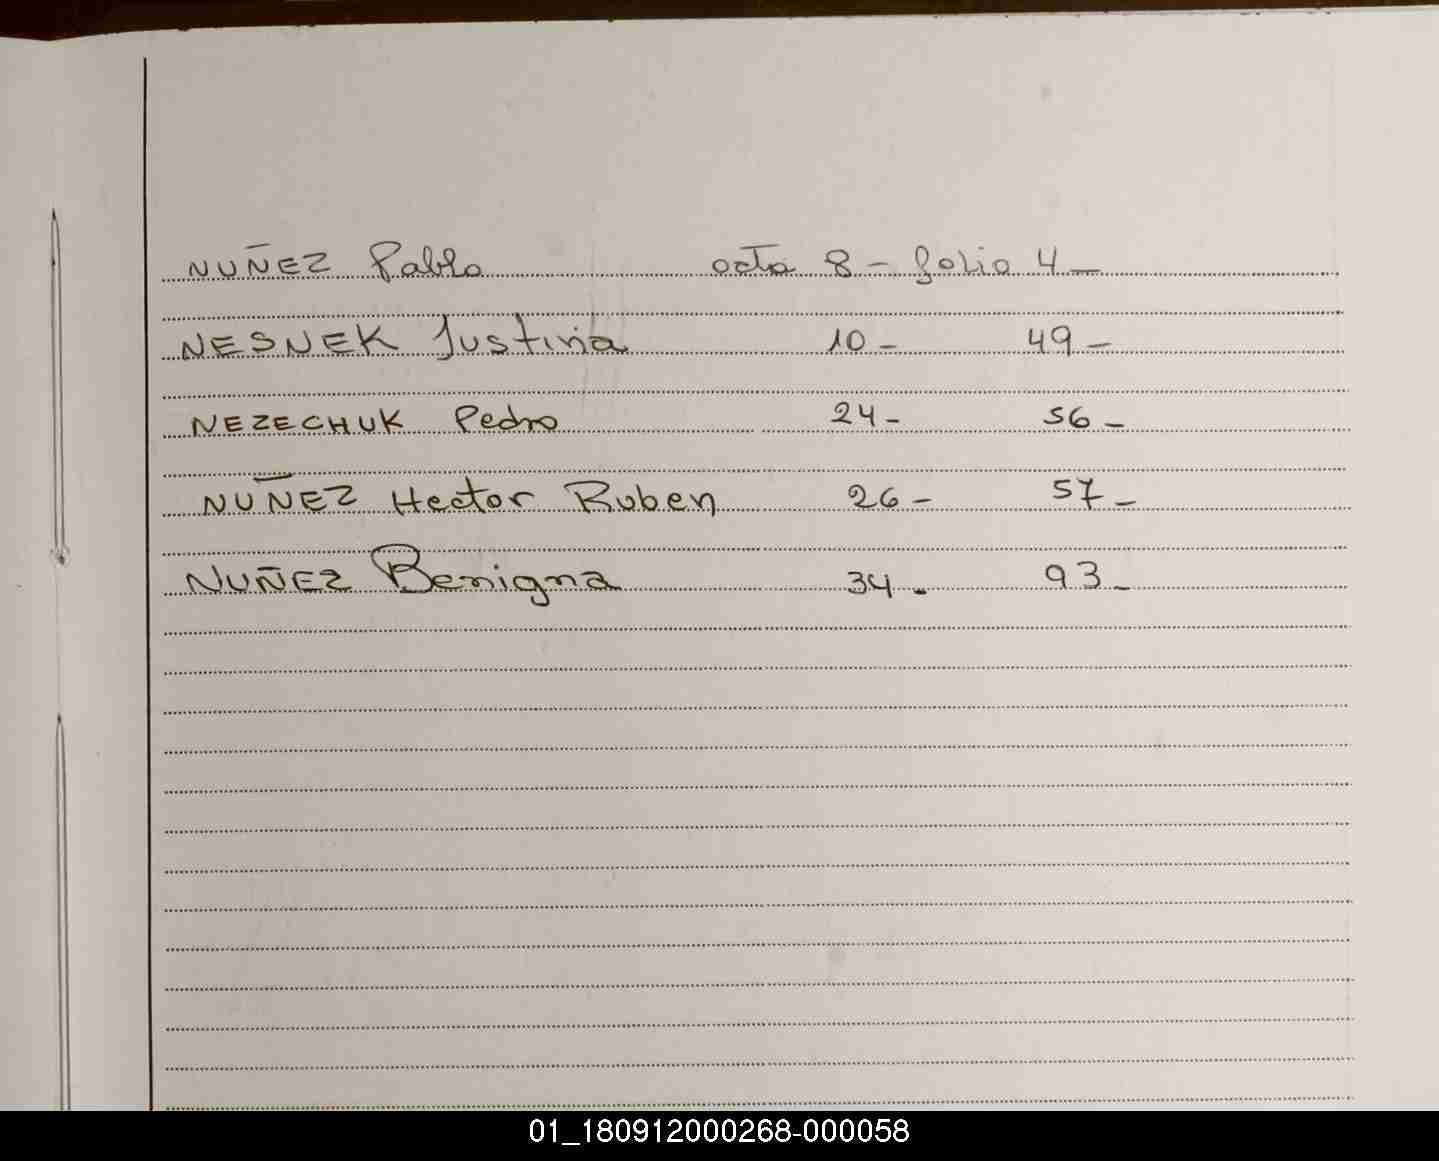 NUÑEZ Pablo acta 8 - folio 4 -
NESNEK Justina 10 - 49 -
NEZECHUK Pedro 24 - 56 -
NUÑEZ Hector Ruben 26 - 57 -
NUÑEZ Benigna 34 - 93 -
01_180912000268-000058